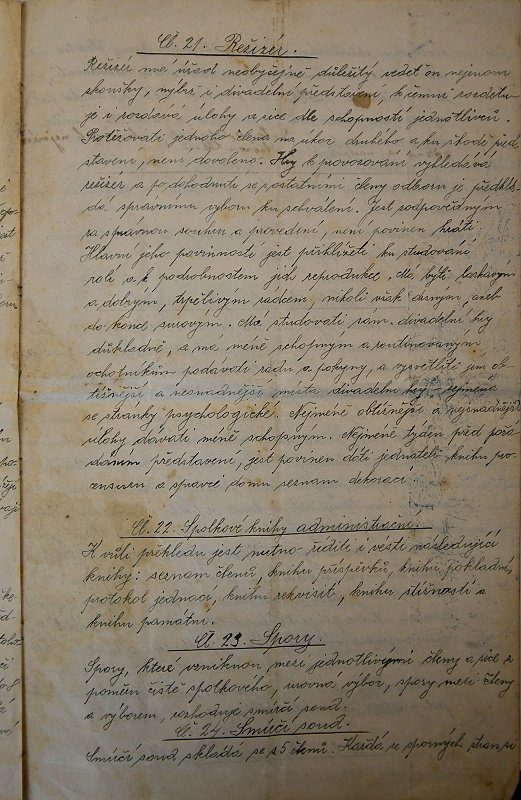 Čl. 21. Režizér.
Režizér má úřad neobyčejně důležitý, neboť on nejenom
zkoušky, nýbrž i divadelní představení, k čemuž
je i rozdává úlohy a sice dle schopností jednotlivců.
Protěžovati jednoho člena na úkor druhého a ku škodě před
stavení, není dovoleno. Hry k provozování vyhledává
režizér a po dohodnutí se s ostatními členy odboru je předklá-
dá správnímu výboru ku schválení. Jest zodpovědným
za správnou souhru a provedení, není povinen hráti.
Hlavní jeho povinností jest přihlížeti ku studování
rolí a k podrobnostem jich reprodukce. Má býti laskavým
a dobrým, trpělivým rádcem, nikoli však drsným, aneb
do konce surovým. Má studovati sám divadelní hry
důkladně, a má méně schopným a routinovaným
ochotníkům podávati radu a pokyny, a vysvětliti jim ob-
tížnější a nesnadnější místa divadelní hry zejména
se stránky psychologické. Nejméně obtížnější a nejsnadnější
úlohy dávati méně schopným. Nejméně týden před pořá-
dáním představení, jest povinen dáti jednateli knihu pro
censuru a správci domu seznam dekorací.
Čl. 22. Spolkové knihy administrační.
K vůli přehledu jest nutno zříditi i vésti následující
knihy: seznam členů, knihu příspěvků, knihu pokladní,
protokol jednací, knihu rekvisit, knihu stížností a
knihu památní.
Čl. 23. Spory.
Spory, které vzniknou mezi jednotlivými členy a sice z
poměru čistě spolkového, urovná výbor, spory mezi členy
a výborem, rozhoduje smírčí soud.
Čl. 24. Smírčí soud.
Smírčí soud skládá se z 5 členů. Každá ze sporných stran si